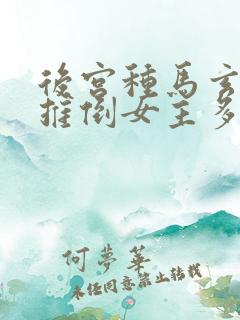 後宮種馬玄
推倒女主多
何夢華
未經同意禁止轉載